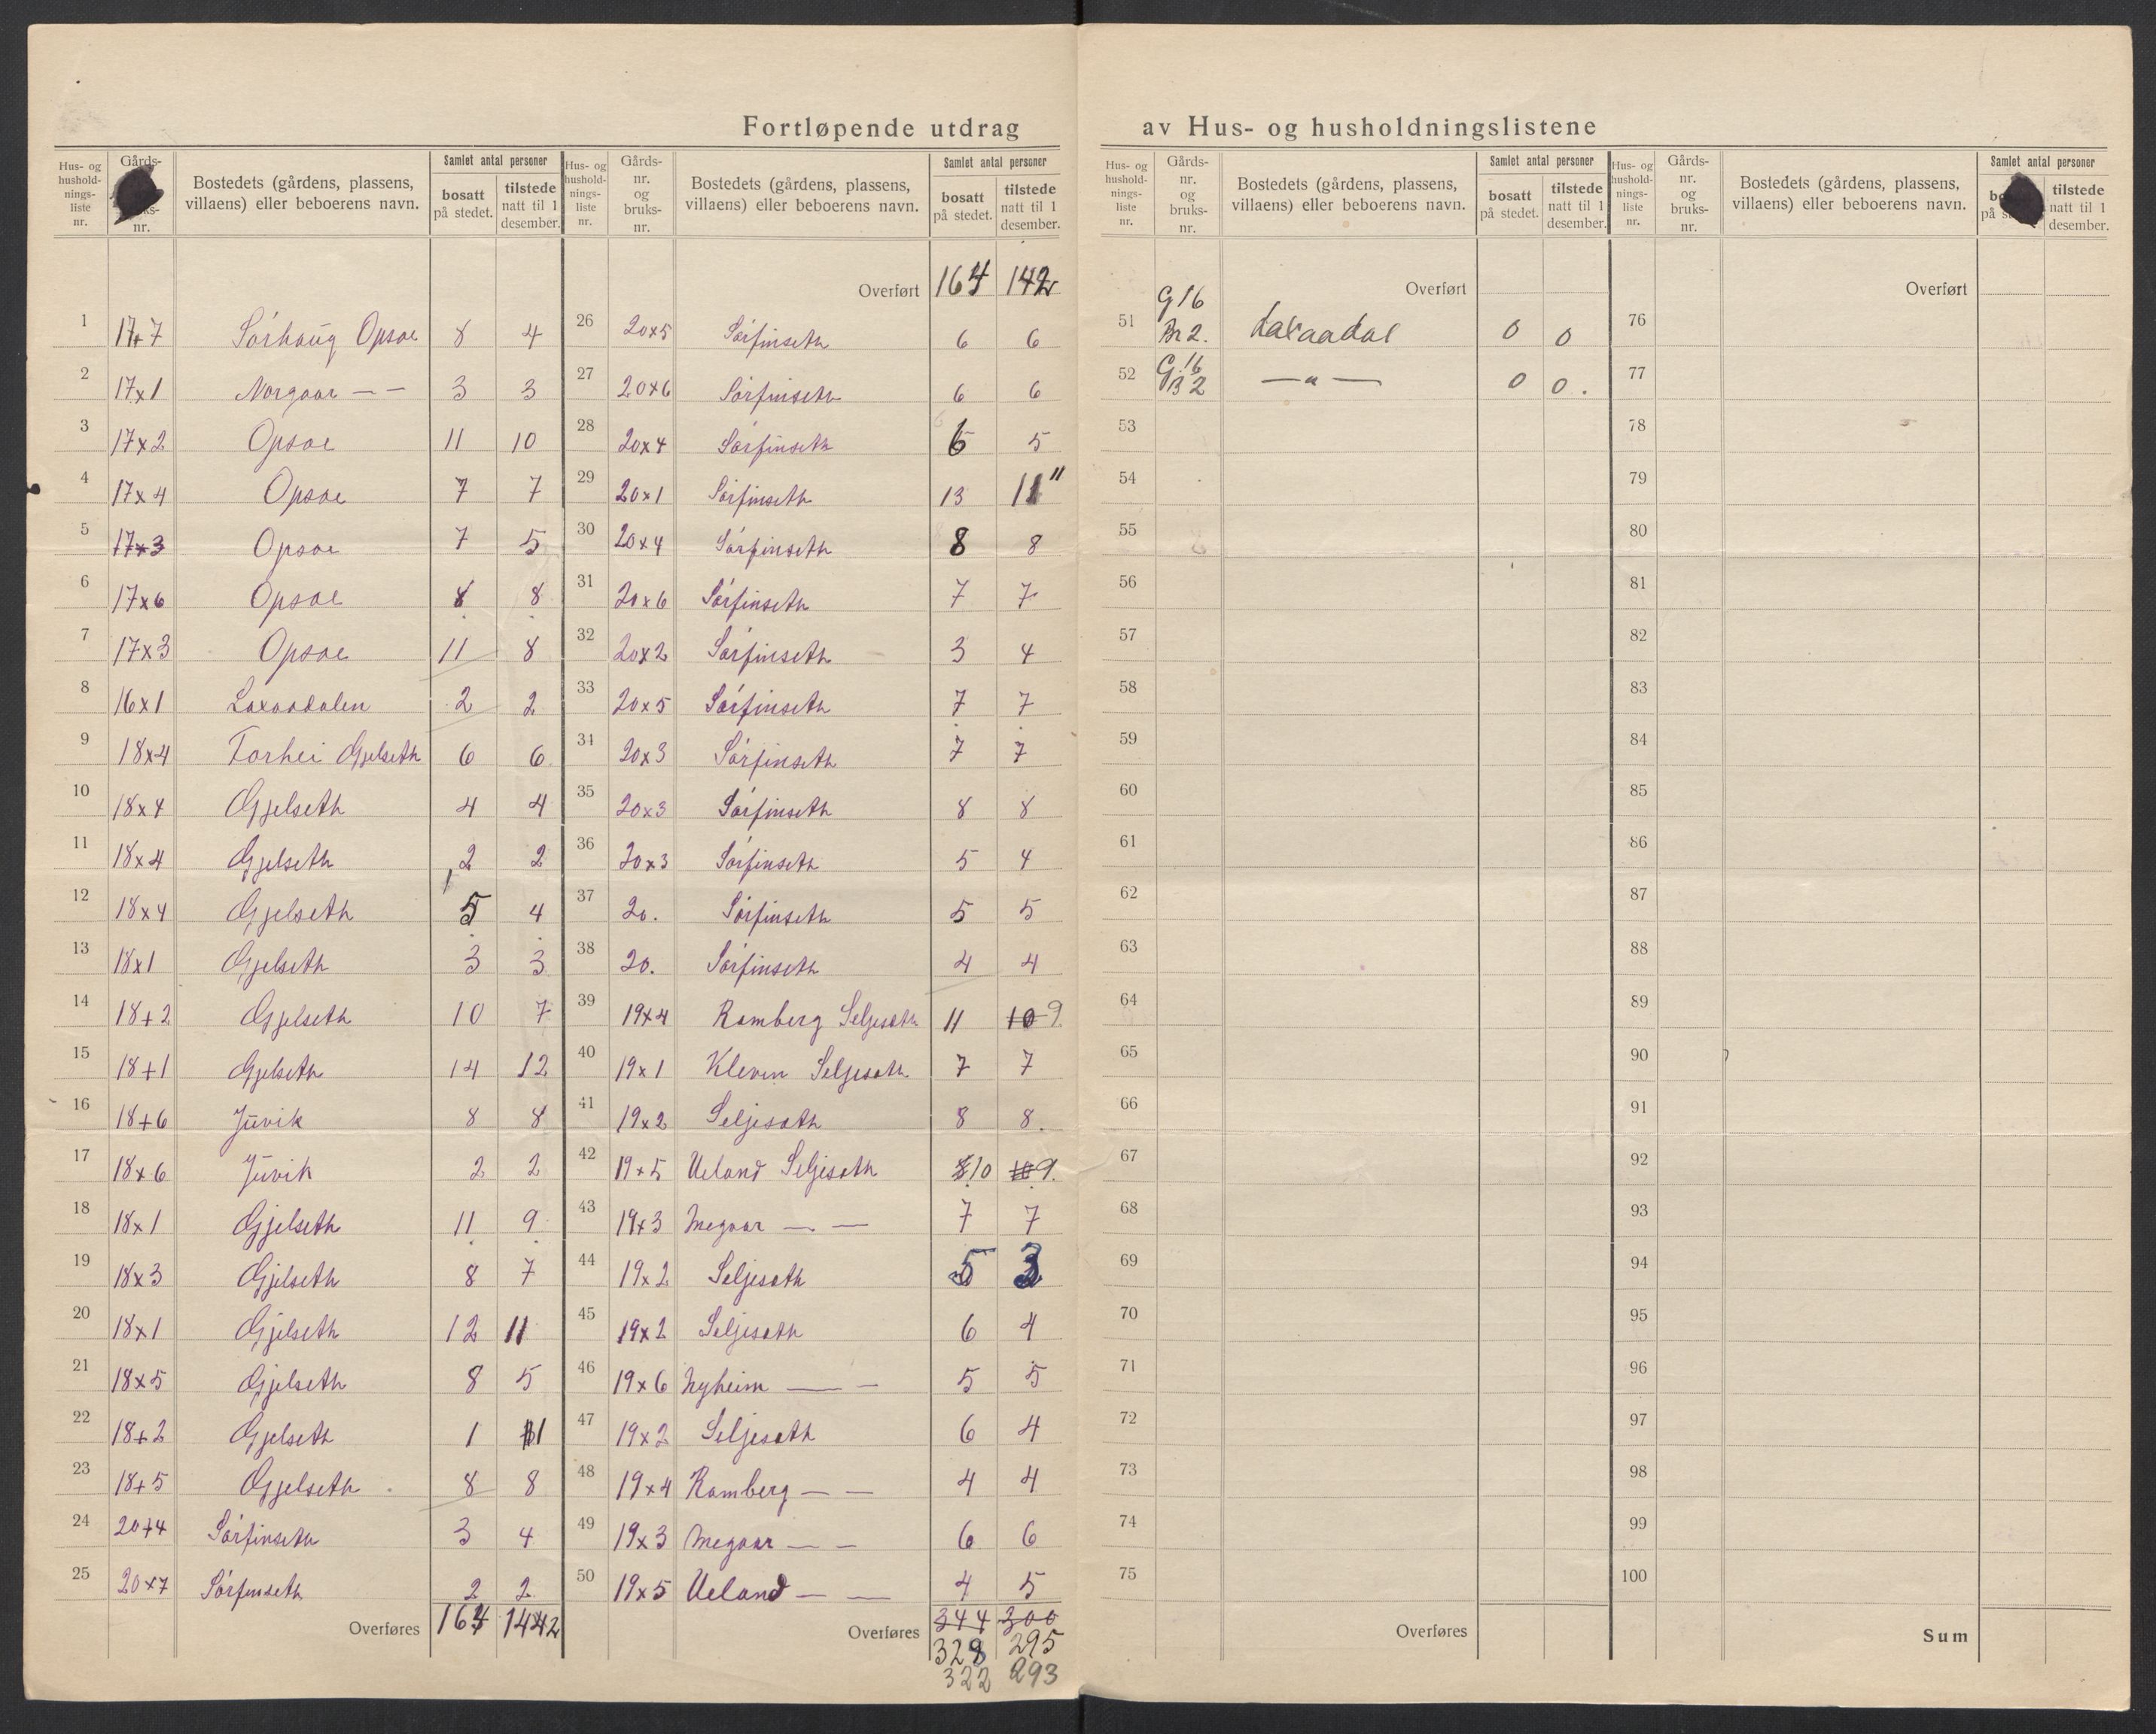 Fortløpende utdrag av Hus- og husholdningslistene
Hus- og husholdningsliste nr. | Gårds- nr. | Bostedets (gårdens, plassens, villaens) eller beboerens navn. | Samlet antal personer: bosatt på stedet. | tilstede natt til 1 desember.
1 17+7 Sørhaug Opsae 8 4
2 17x1 Norgaar — — 3 3
3 17x2 Opsae 11 10
4 17x4 Opsae 7 7
5 17x3 Opsae 7 5
6 17x6 Opsae 8 8
7 17x3 Opsae 11 8
8 16x1 Laxaadalen 2 2
9 18x4 Forhei Gjelseth 6 6
10 18x4 Gjelseth 4 4
11 18x4 Gjelseth 2 2
12 18x4 Gjelseth 5 4
13 18x1 Gjelseth 3 3
14 18+2 Gjelseth 10 7
15 18+1 Gjelseth 14 12
16 18+6 Jūvik 8 8
17 18x6 Jūvik 2 2
18 18x1 Gjelseth 11 9
19 18x3 Gjelseth 8 7
20 18x1 Gjelseth 12 11
21 18x5 Gjelseth 8 5
22 18+2 Gjelseth 1 1
23 18+5 Gjelseth 8 8
24 20+4 Sørfinseth 3 4
25 20x7 Sørfinseth 2 2
Overføres 164 142
Hus- og husholdningsliste nr. | Gårds- nr. og bruks- nr. | Bostedets (gårdens, plassens, villaens) eller beboerens navn. | Samlet antal personer: bosatt på stedet. | tilstede natt til 1 desember.
Overført 164 142
26 20x5 Sørfinseth 6 6
27 20x6 Sørfinseth 6 6
28 20x4 Sørfinseth 6 5
29 20x1 Sørfinseth 13 11 11
30 20x4 Sørfinseth 8 8
31 20x6 Sørfinseth 7 7
32 20x2 Sørfinseth 3 4
33 20x5 Sørfinseth 7 7
34 20x3 Sørfinseth 7 7
35 20x3 Sørfinseth 8 8
36 20x3 Sørfinseth 5 4
37 20. Sørfinseth 5 5
38 20. Sørfinseth 4 4
39 19x4 Ramberg Seljesath 11 10 9
40 19x1 Kleven Seljesath 7 7
41 19x2 Seljesath 8 8.
42 19x5 Ueland Seljesath 8 10 10 9.
43 19x3 Megaar — — 7 7
44 19x2 Seljesath 5 3
45 19x2 Seljesath 6 4
46 19x6 Nyheim — — 5 5
47 19x2 Seljesath 6 4
48 19x4 Ramberg — — 4 4
49 19x3 Megaar — — 6 6
50 19x5 Ueland — — 4 5
Overføres 344 300
328 295
322 293
Hus- og husholdningsliste nr. | Gårds- nr. og bruks- nr. | Bostedets (gårdens, plassens, villaens) eller beboerens navn. | Samlet antal personer: bosatt på stedet. | tilstede natt til 1 desember.
Overført
51 G16 Br2. Laxaadal 0 0
52 G.16 B2 —"— 0 0.
53
54
55
56
57
58
59
60
61
62
63
64
65
66
67
68
69
70
71
72
73
74
75
Overføres
Hus- og husholdningsliste nr. | Gårds- nr. og bruks- nr. | Bostedets (gårdens, plassens, villaens) eller beboerens navn. | Samlet antal personer: | tilstede natt til 1 desember.
Overført
76
77
78
79
80
81
82
83
84
85
86
87
88
89
90
91
92
93
94
95
96
97
98
99
100
Sum